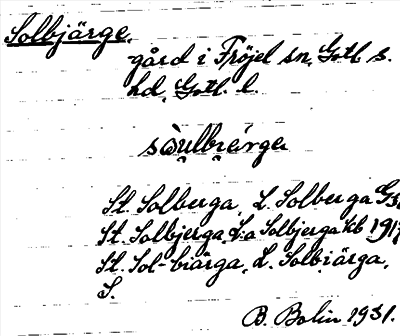 Solbjärge.
gård i Fröjel sn, Gotl. s.
hd, Gotl. l.
sòulbi̯érga
St. Solberga, L. Solberga
St. Solbjerga, L:a Solbjerga kb 1917
St. Sol-biärga, L. Solbiärga,
S.
B. Bolin 1931.